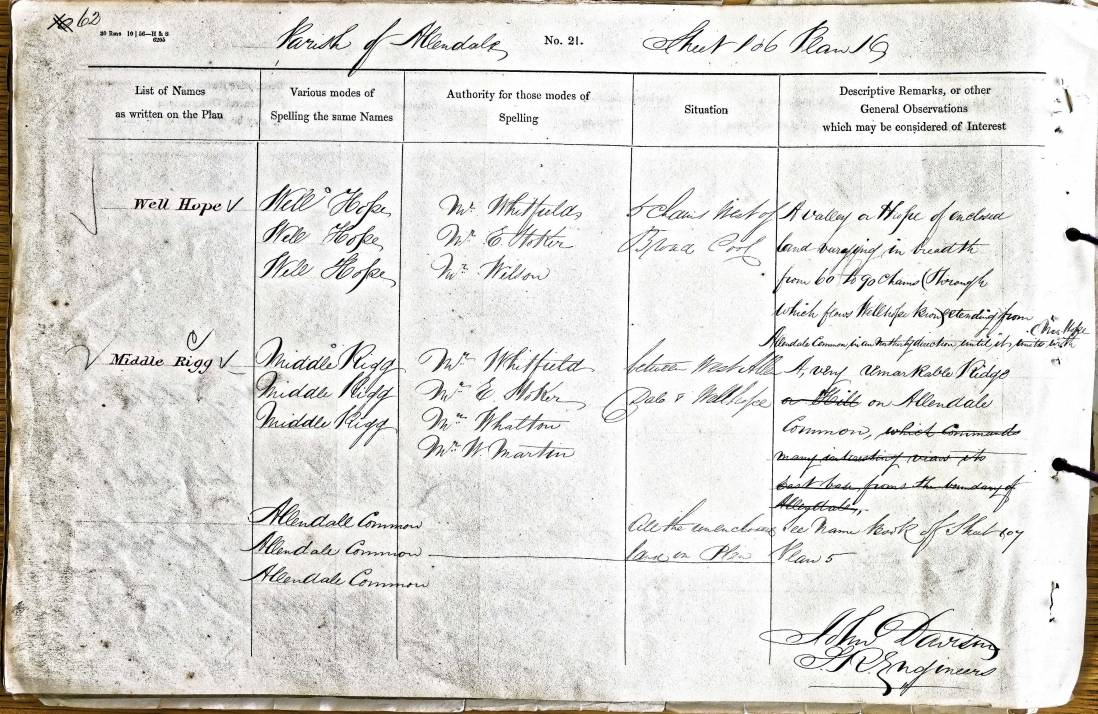 62
Parish of Allendale No. 21. Sheet 106 Plan 16
List of Names as written on the Plan
Various modes of Spelling the same Names
Authority for those modes of Spelling
Situation
Descriptive Remarks, or other General Observations which may be considered of Interest
Well Hope
Well Hope
Well Hope
Well Hope
Mr. Whitfield
Mr. E. Stoker
Mr. Wilson
5 chains West of
Broad Cool
A valley or Hope of enclosed
land varying in breadth
from 60 to 90 chains (Through
which flows Wellhope
Allendale Common in an Northerly direction until it
Middle Rigg
Middle Rigg
Middle Rigg
Middle Rigg
Mr. Whitfield
Mr. E. Stoker
Mr. Whatton
Mr. W. Martin
between West Allen
Dale & Wellhope
A, very remarkable Ridge
or Hill on Allendale
Common, which Commands
many interesting views its
east base forms the boundary of
Allendale.
Allendale Common
Allendale Common
Allendale Common
All the unenclosed
land on Plan
See Name book of Sheet 107
Plan 5
John Davison
R. Engineers